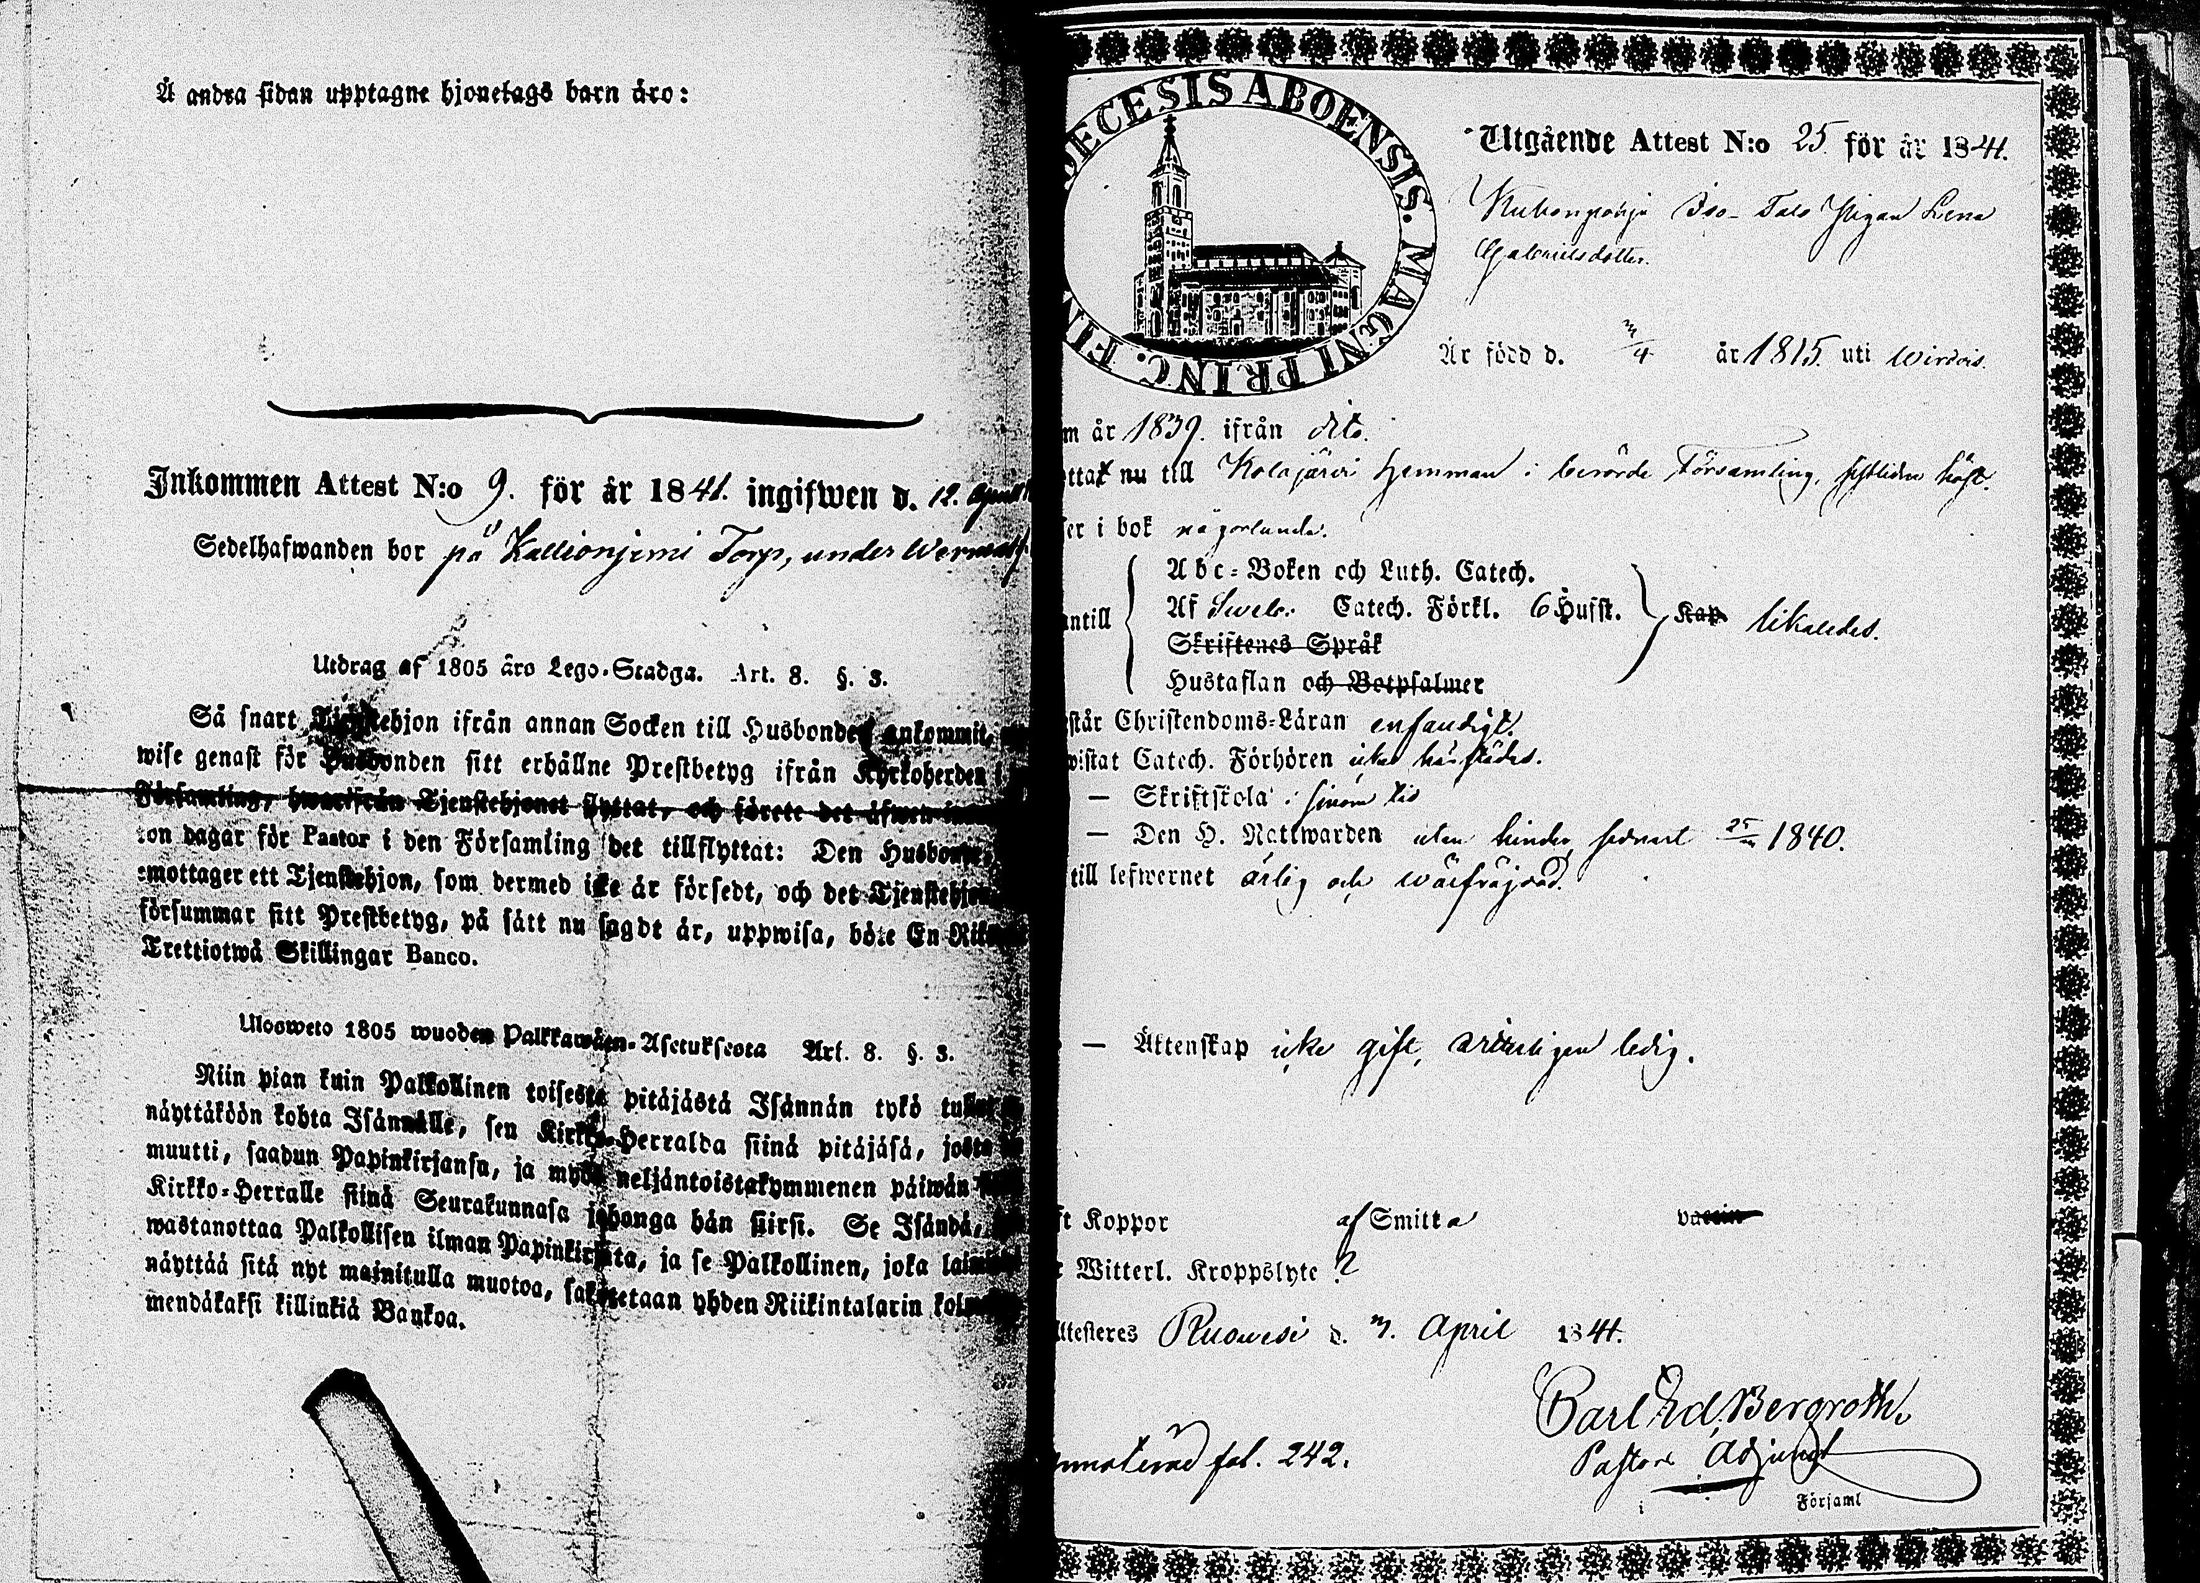 Å andra sidan upptagne hjonelags barn äro:
Inkommen Attest N:o 9. för år 1841. ingifwen d. 12. April
Sedelhafwanden bor på Kallionjemi Torp, under
Utdrag af 1805 åro Lego-Stadga. Art. 8. §. 3.
Så snart Tjenstehjon ifrån annan Socken till Husbonden ankommit,
wise genast för Husbonden sitt erhållne Prestbetyg ifrån Kyrkoherden i
Församling, hwarifrån Tjenstehjonet flyttat, och förete det äfwen
ton dagar för Pastor i den Församling det tillflyttat: Den
emottager ett Tjenstehjon, som dermed icke är försedt, och det
försummar sitt Prestbetyg, på sätt nu sagdt är, uppwisa, böte En
Trettiotwå Skillingar Banco.
Ulosweto 1805 wuoden Palkkawäen-Asetuksesta Art. 8. §. 3.
Niin pian kuin Palkollinen toisesta pitäjästä Isännän tykö
näyttäköön kohta Isännälle, sen Kirkko-Herralda siinä pitäjäsä, josta
muutti, saadun Papinkirjansa, ja myös neljäntoistakymmenen päiwän
Kirkko-Herralle siinä Seurakunnasa johonga hän siirsi. Se Isändä,
wastanottaa Palkollisen ilman Papinkirjata, ja se Palkollinen, joka
näyttää sitä nyt mainitulla muotoa, sakotetaan yhden Riikintalarin
mendäkaksi killinkiä Bankoa.
DECESIS ABOENSIS. MAGNI PRINC. FIN
Utgående Attest N:o 25 för år 1841.
Iso-Talo Pigan Lena
Gabrielsdotter.
Är född d. /4 år 1815. uti Wirdois.
m år 1839. ifrån dito.
ttat nu till Kolajärvi Hemman i berörde Församling, sistliden höst.
er i bok någorlunda.
antill
Abc-Boken och Luth. Catech.
Af Sweb. Catech. Förkl. 6 Hufst.
Skriftenes Språk
Hustaflan och Botpsalmer
Kap likaledes.
står Christendoms-Läran enfaldigt.
wistat Catech. Förhören icke härstädes.
— Skriftskola i sinom tid
— Den H. Nattwarden utan hinder sednast 25/ 1840.
till lefwernet ärlig och wälfräjdad.
— Äktenskap icke gift, witterligen ledig.
ft Koppor af Smitta vaccin
r Witterl. Kroppslyte ?
Attesteres Ruowesi d. April 1841.
Carl Ed. Bergroth.
Pastors Adjunct
i Församl
annoterad fol. 242.